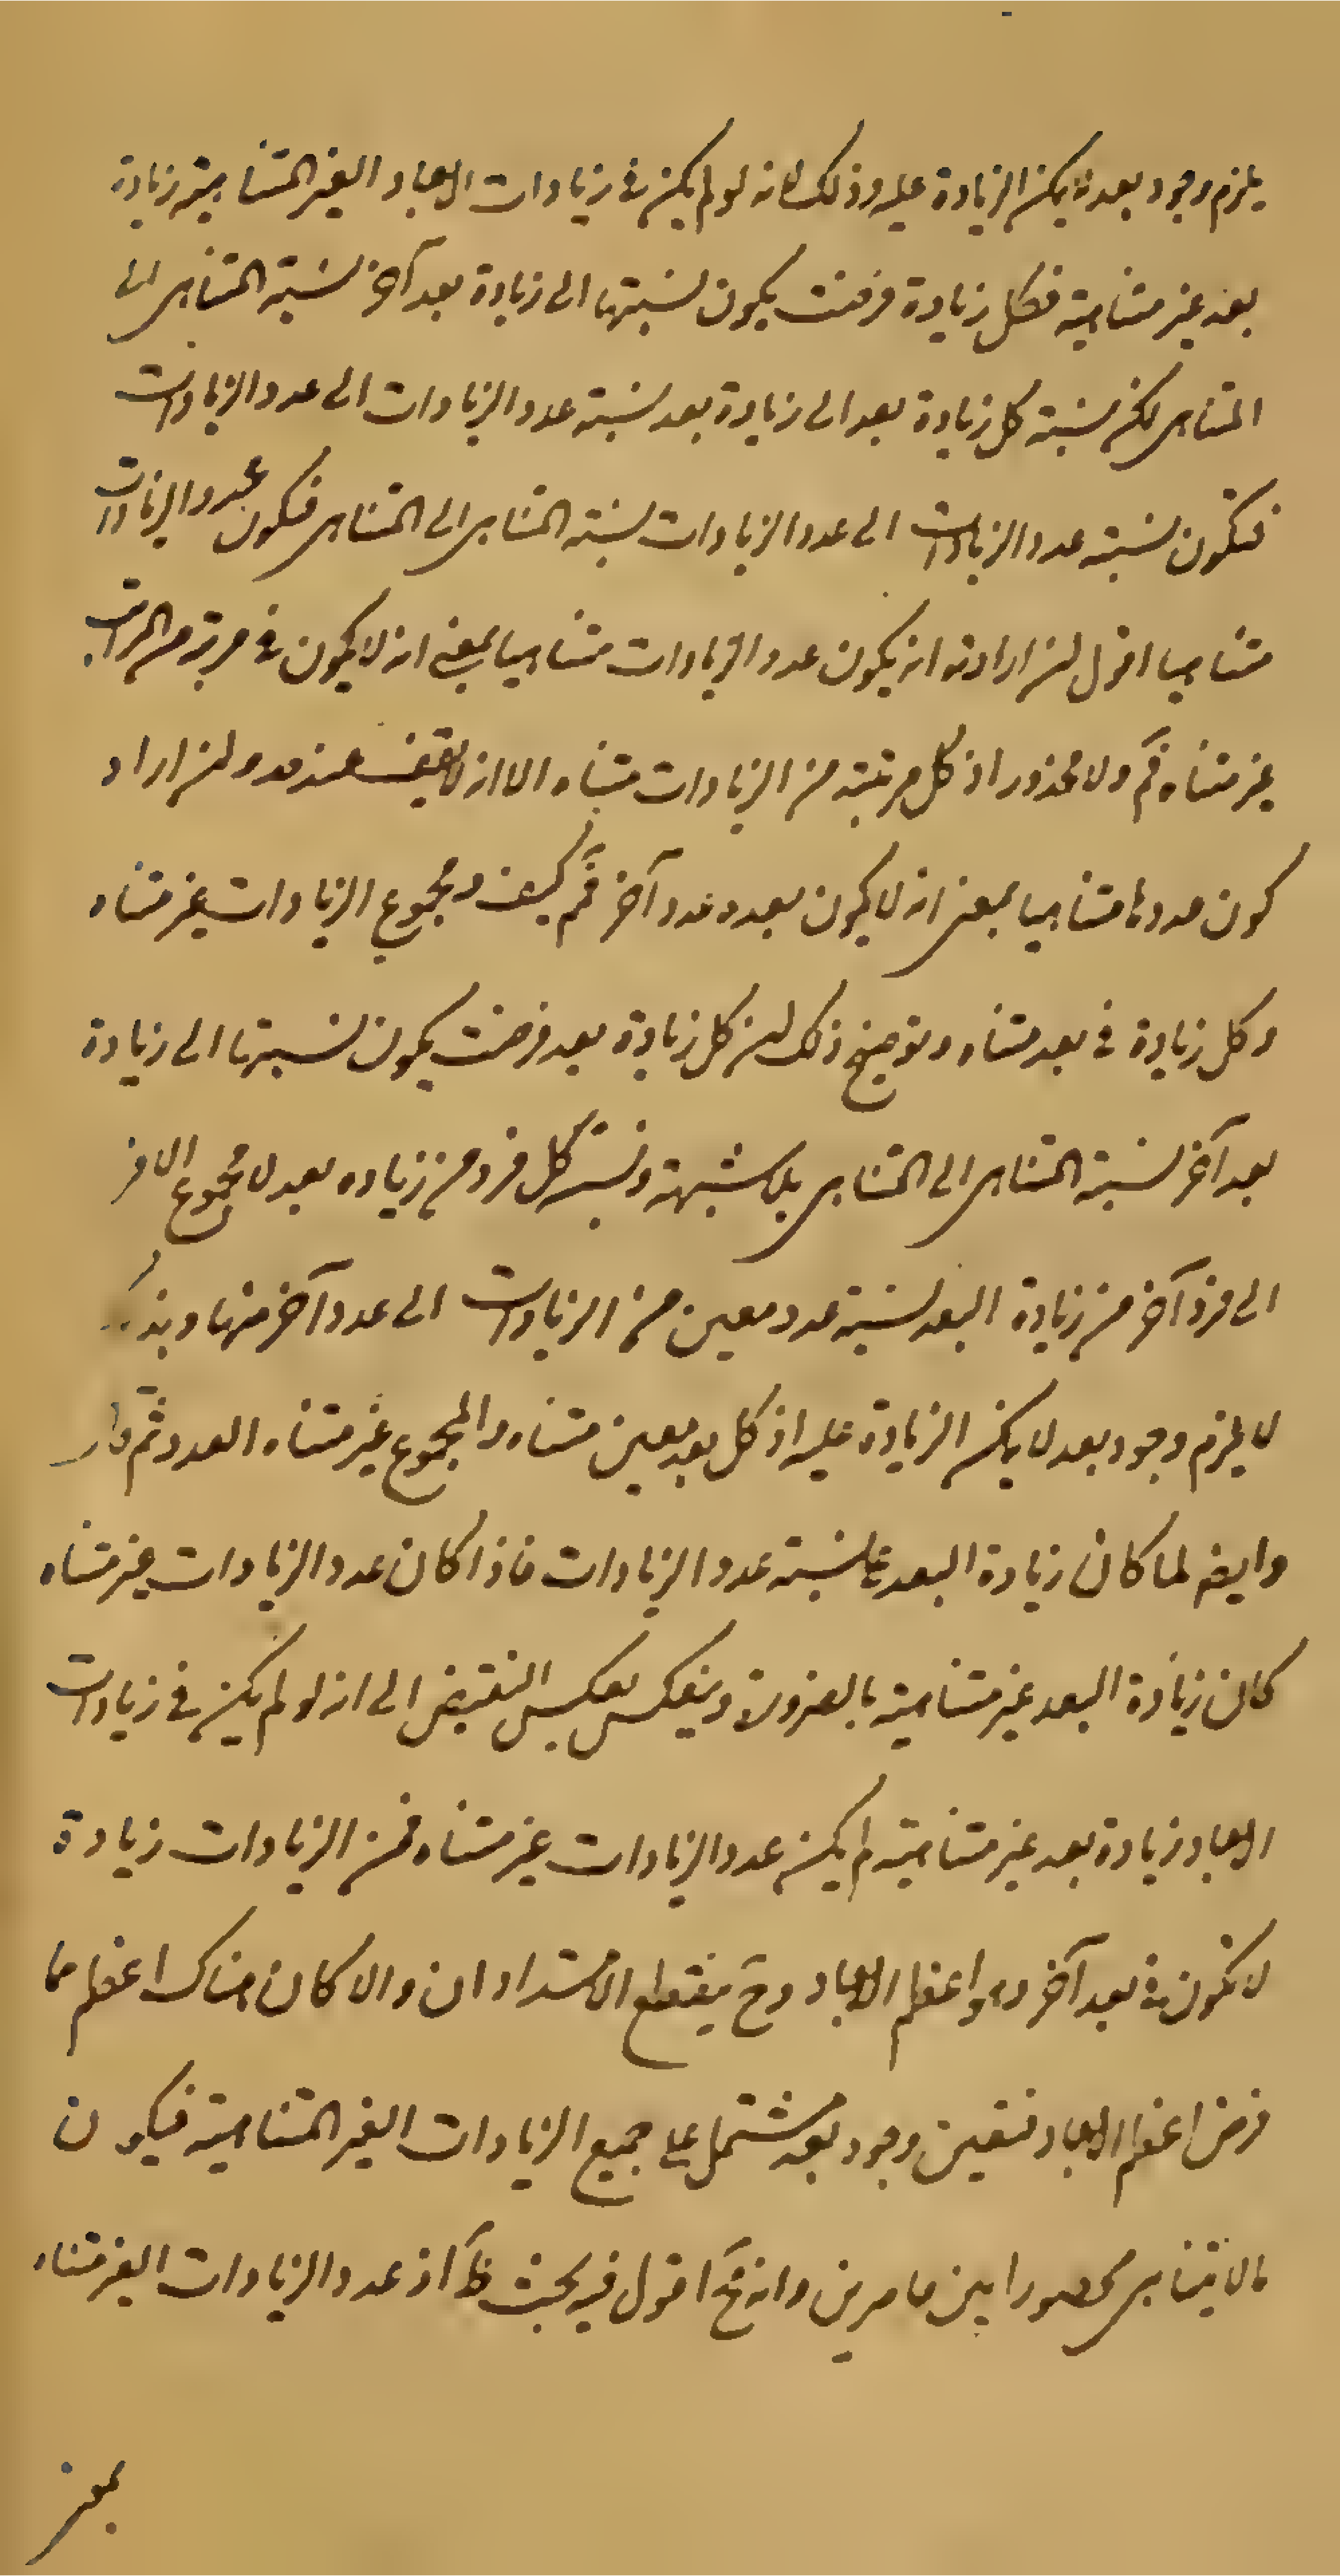 يلزم وجود بعد لا يمكن الزيادة عليه وذلك لانه لو لم يكن في زيادات الابعاد الغير المتناهية زيادة
بعد غير متناهية فكل زيادة فرضت يكون نسبتها الى زيادة بعد آخر نسبة المتناهى الى
المتناهى لكن نسبة كل زيادة بعد الى زيادة بعد نسبة عدد الزيادات الى عدد الزيادات
فتكون نسبة عدد الزيادات الى عدد الزيادات نسبة المتناهى الى المتناهى فيكون عدد الزيادات
متناهيا اقول ان اراد به ان يكون عدد الزيادات متناهيا بمعنى انه لا يكون في مرتبة من المراتب
غير متناه فم ولا محذور اذ كل مرتبة من الزيادات متناه الا انه لا يقف عند حد وان اراد
كون عددها متناهيا بمعنى انه لا يكون بعده عدد آخر فم كيف ومجموع الزيادات غير متناه
وكل زيادة في بعد متناه وتوضيح ذلك ان كل زيادة بعد فرضت يكون نسبتها الى زيادة
بعد آخر نسبة المتناهى الى المتناهى بلا شبهة ونسبة كل فرد من زيادة بعد لا مجموع الافر
الى فرد آخر من زيادة البعد نسبة عدد معين من الزيادات الى عدد آخر منها وبذلك
لا يلزم وجود بعد لا يمكن الزيادة عليه اذ كل بعد معين متناه والمجموع غير متناه العدد ثم قال
وايضا لما كان زيادة البعد على نسبة عدد الزيادات فاذا كان عدد الزيادات غير متناه
كان زيادة البعد غير متناهية بالضرورة وينعكس بعكس النقيض الى انه لو لم يكن في زيادات
الابعاد زيادة بعد غير متناهية لم يكن عدد الزيادات غير متناه فمن الزيادات زيادة
لا تكون في بعد آخر وهو اعظم الابعاد وح ينقطع الامتدادان والا كان هناك اعظم مما
فرض اعظم الابعاد فتعين وجود بعد مشتمل على جميع الزيادات الغير المتناهية فيكون
مالا يتناهى محصورا بين حاصرين وانه مح اقول فيه بحث ظ اذ عدد الزيادات الغير متناه
بمعنى